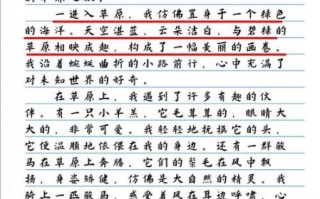 一进入草原，我仿佛置身于一个绿色
的海洋。天空湛蓝，云朵洁白，与碧绿的
草原相映成趣，构成了一幅美丽的画卷。
我沿着蜿蜒曲折的小路前行，心中充满了
对未知世界的好奇。
在草原上，我遇到了许多有趣的伙
伴。有一只小羊羔，它毛茸茸的，眼睛大
大的，非常可爱。我轻轻地抚摸它的头，
它便温顺地依偎在我的身边。还有一群骏
马在草原上奔腾，它们的鬃毛在风中飘
扬，身姿矫健，仿佛是大自然的精灵。我
骑上一匹骏马，感受着风在耳边呼啸，心